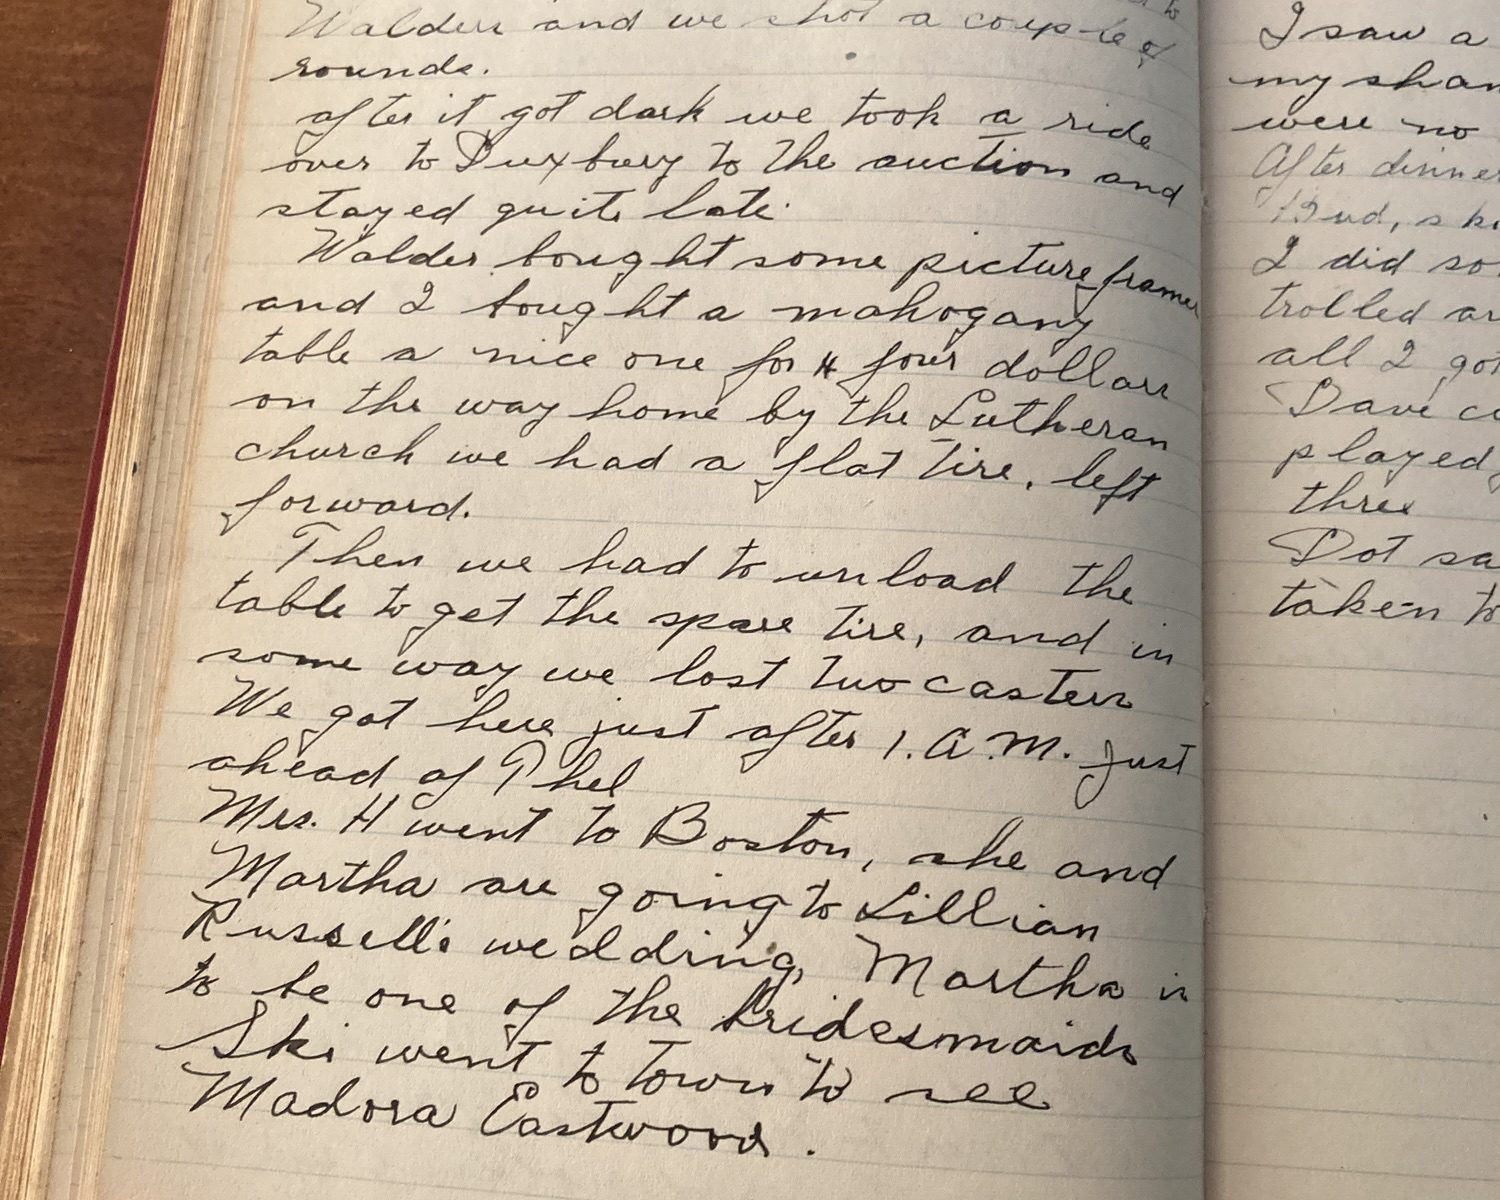 Walder and we shot a couple of
rounds.
after it got dark we took a ride
over to Duxbury to the auction and
stayed quite late.
Walder bought some picture frames
and I bought a mahogany
table a nice one for four dollars
on the way home by the Lutheran
church we had a flat tire, left
forward.
Then we had to unload the
table to get the spare tire, and in
some way we lost two casters
We got here just after 1. A.M. just
ahead of Phel
Mrs. H went to Boston, she and
Martha are going to Lillian
Russell's wedding, Martha is
to be one of the bridesmaids
Ski went to town to see
Madora Eastwood.
I saw a
my
were no
After dinner
Bud,
I did
trolled
all I got
Dave
played
three
Dot
taken to